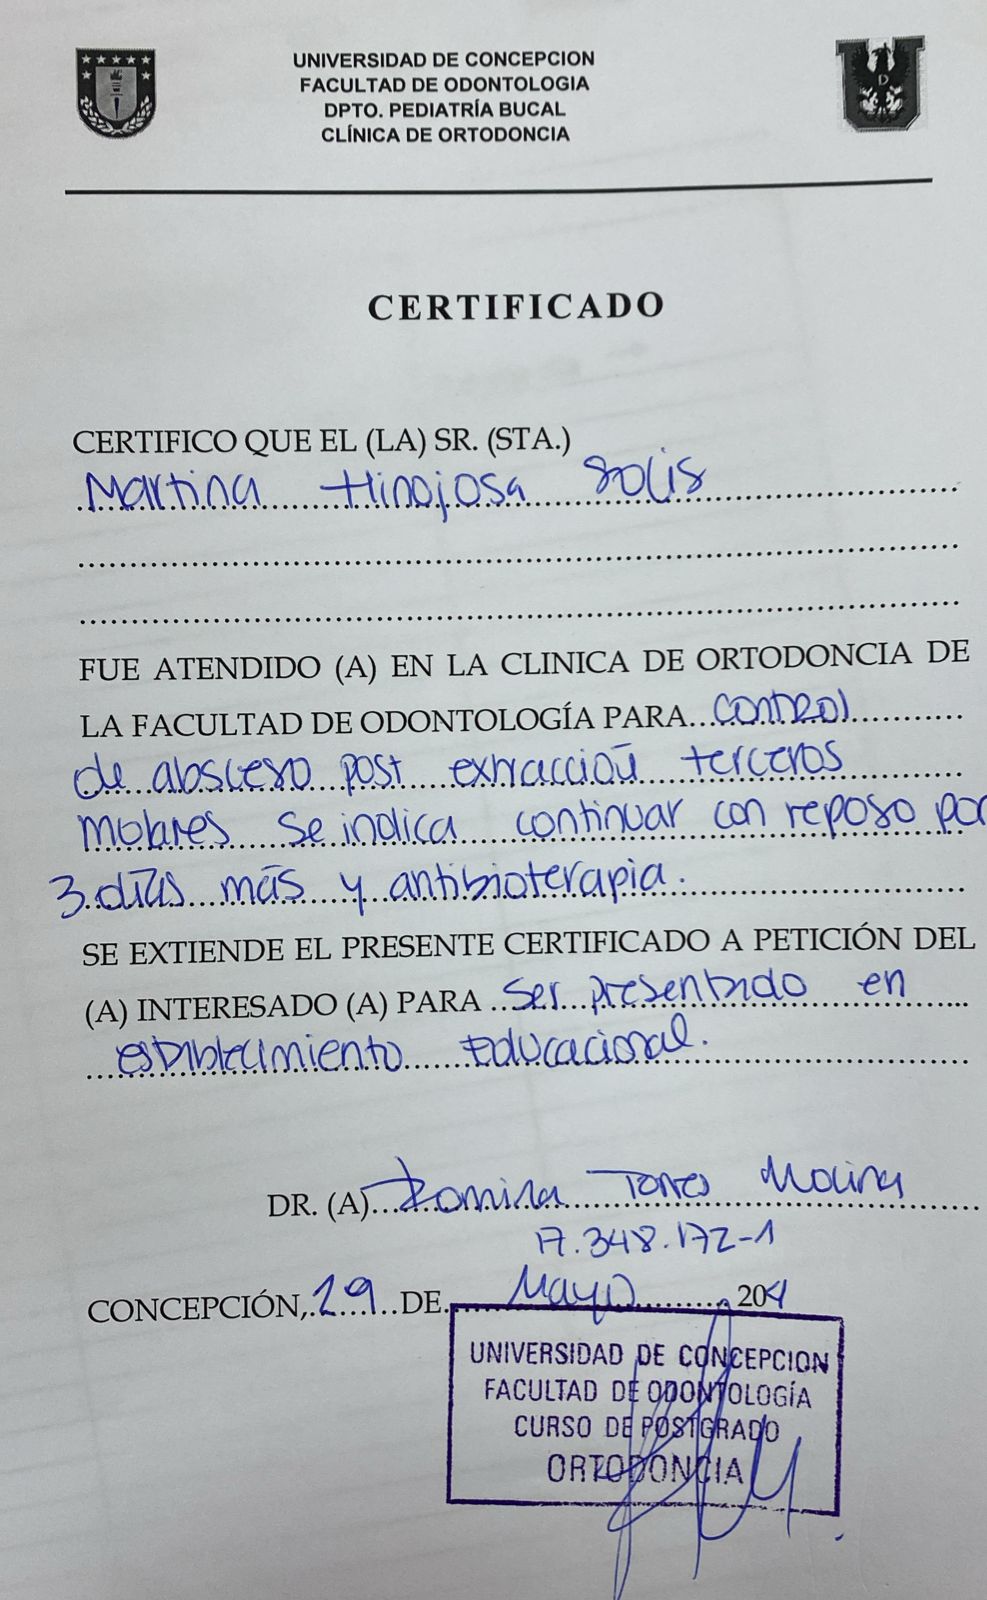 UNIVERSIDAD DE CONCEPCION
FACULTAD DE ODONTOLOGIA
DPTO. PEDIATRÍA BUCAL
CLÍNICA DE ORTODONCIA
CERTIFICADO
CERTIFICO QUE EL (LA) SR. (STA.)
Martina Hinojosa Solis
FUE ATENDIDO (A) EN LA CLINICA DE ORTODONCIA DE
LA FACULTAD DE ODONTOLOGÍA PARA control
de absceso post extracción terceros
molares se indica continuar con reposo por
3 días más y antibioterapia.
SE EXTIENDE EL PRESENTE CERTIFICADO A PETICIÓN DEL
(A) INTERESADO (A) PARA ser presentado en
establecimiento Educacional.
DR. (A) Romina Torres Molina
17.348.172-1
CONCEPCIÓN, 29 DE Mayo 20
UNIVERSIDAD DE CONCEPCION
FACULTAD DE ODONTOLOGÍA
CURSO DE POSTGRADO
ORTODONCIA